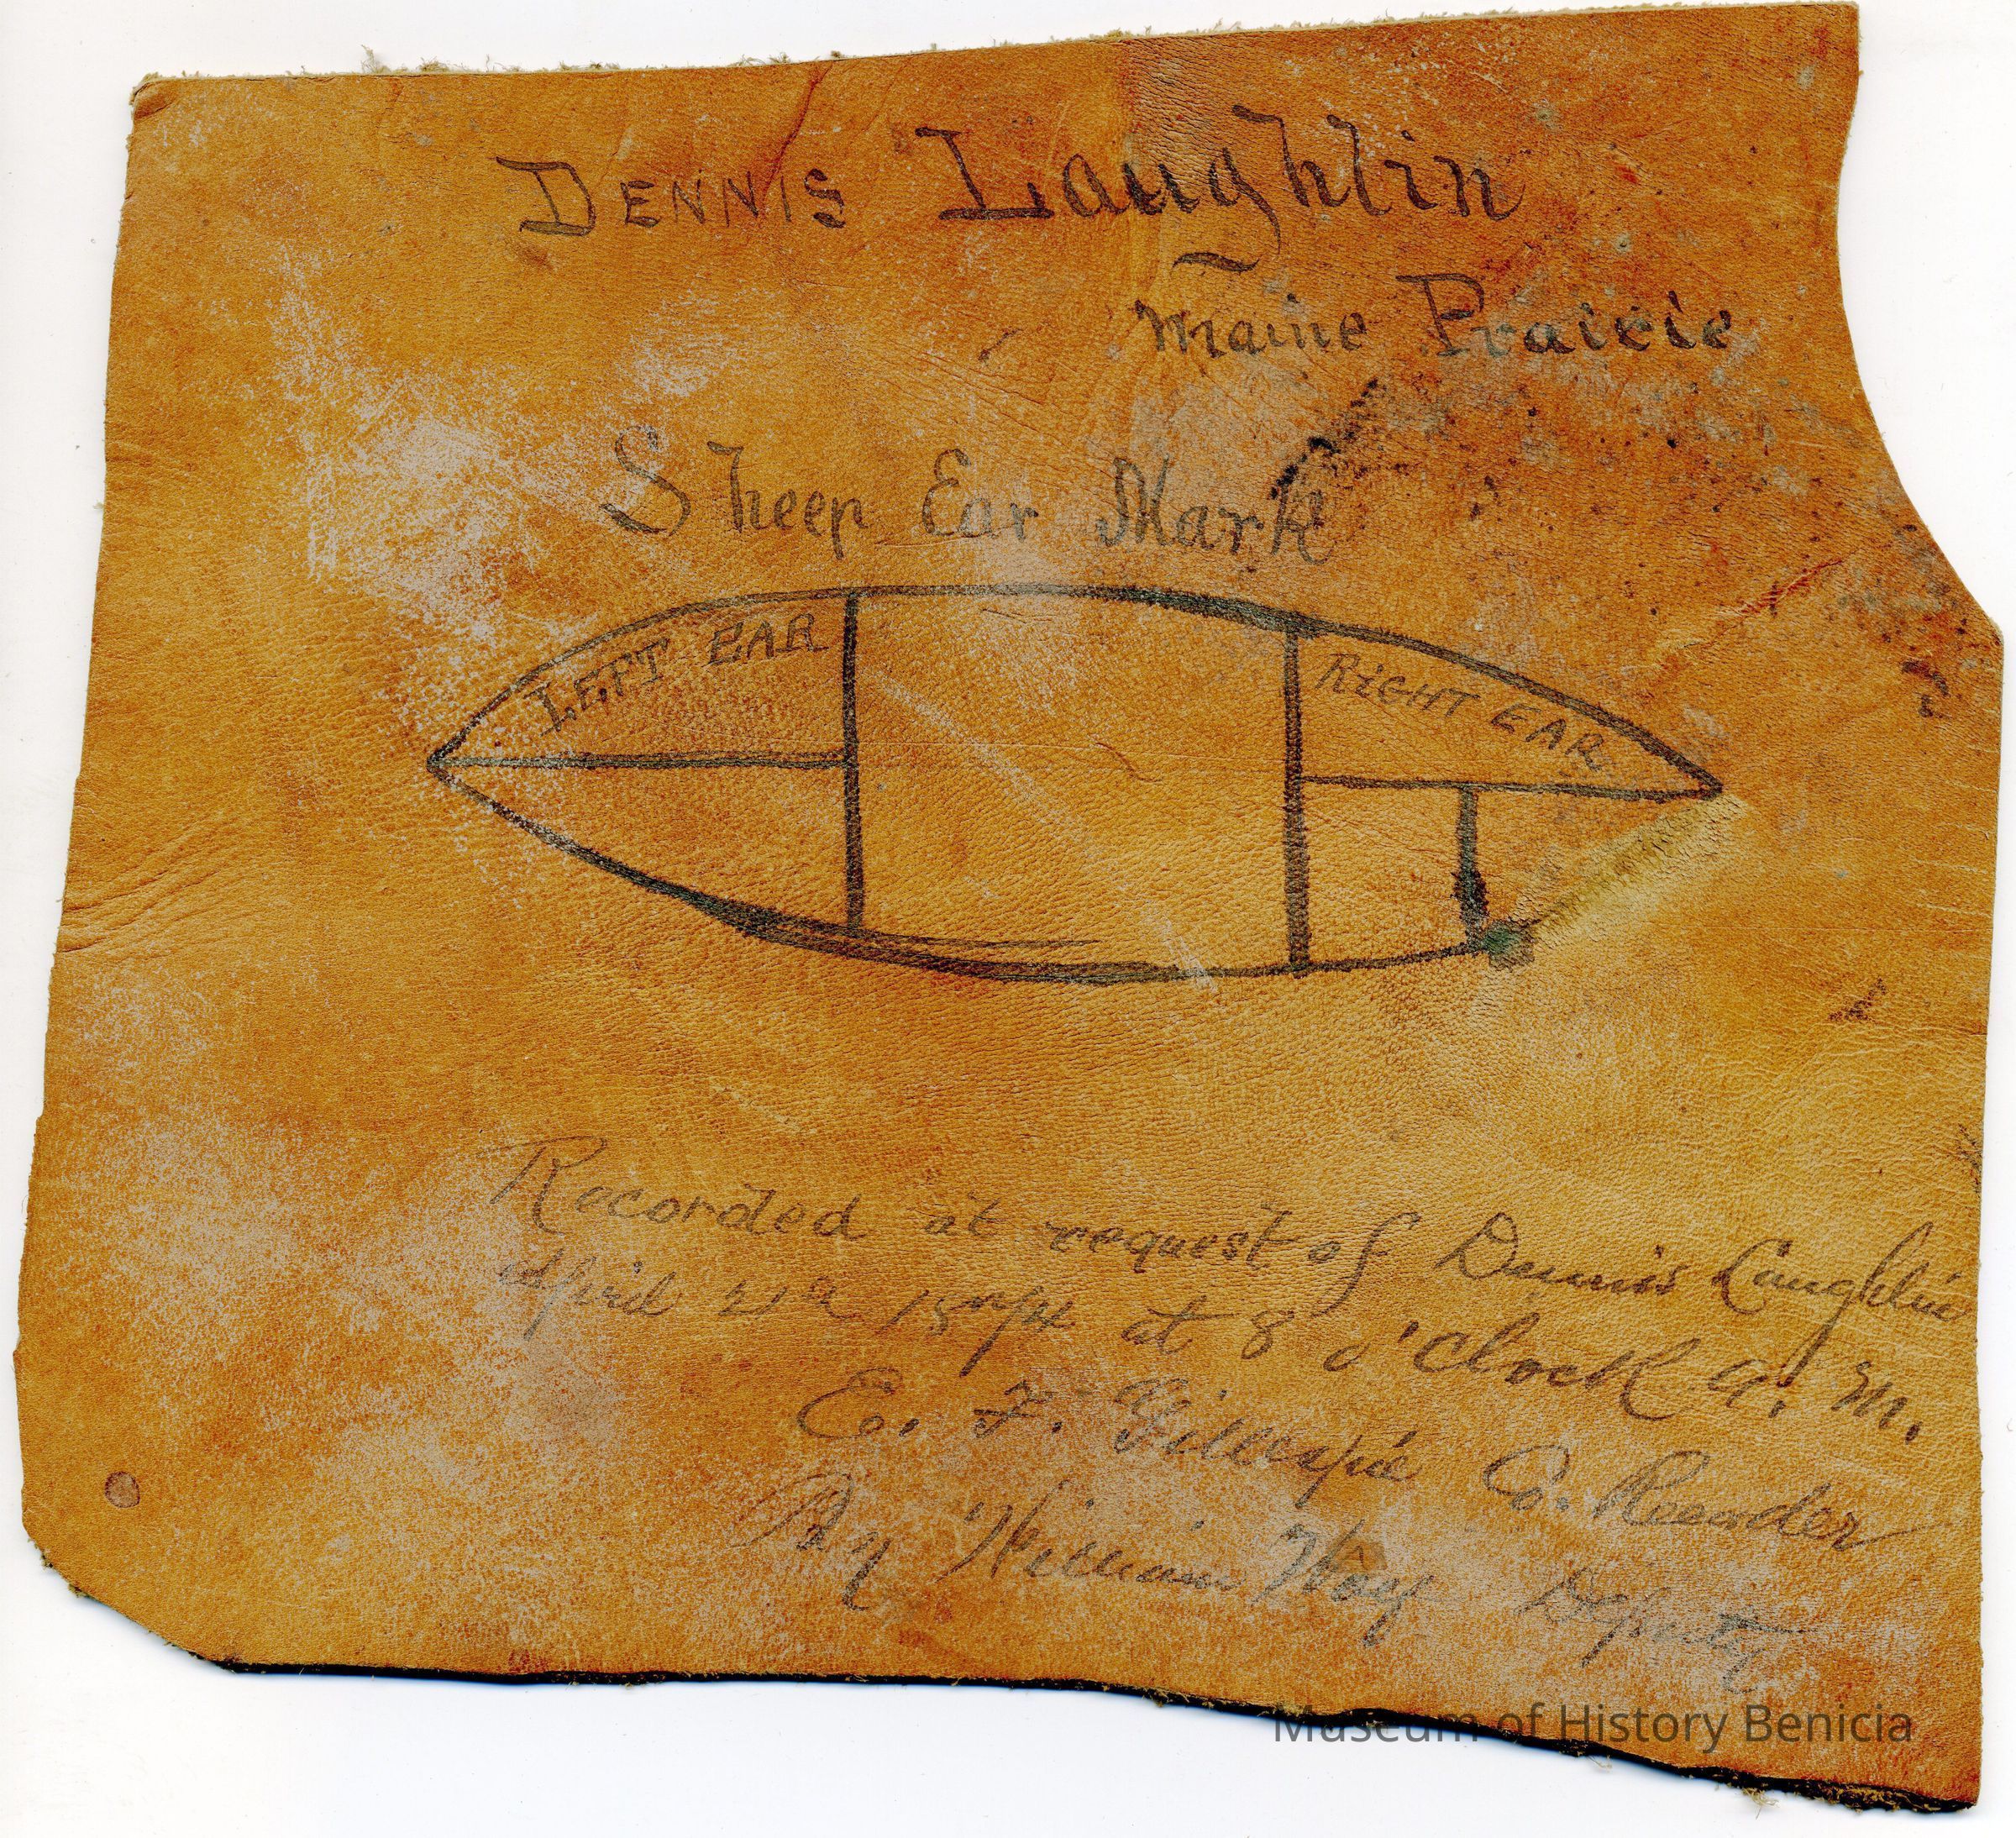 DENNIS Laughlin
Maine Prairie
Sheep Ear Mark
LEFT EAR
RIGHT EAR
Recorded at request of Dennis Laughlin
April 2nd 1874 at 8 o'clock A. M.
E. F. Gillespie Co. Recorder
By William Hoag Deputy
Museum of History Benicia